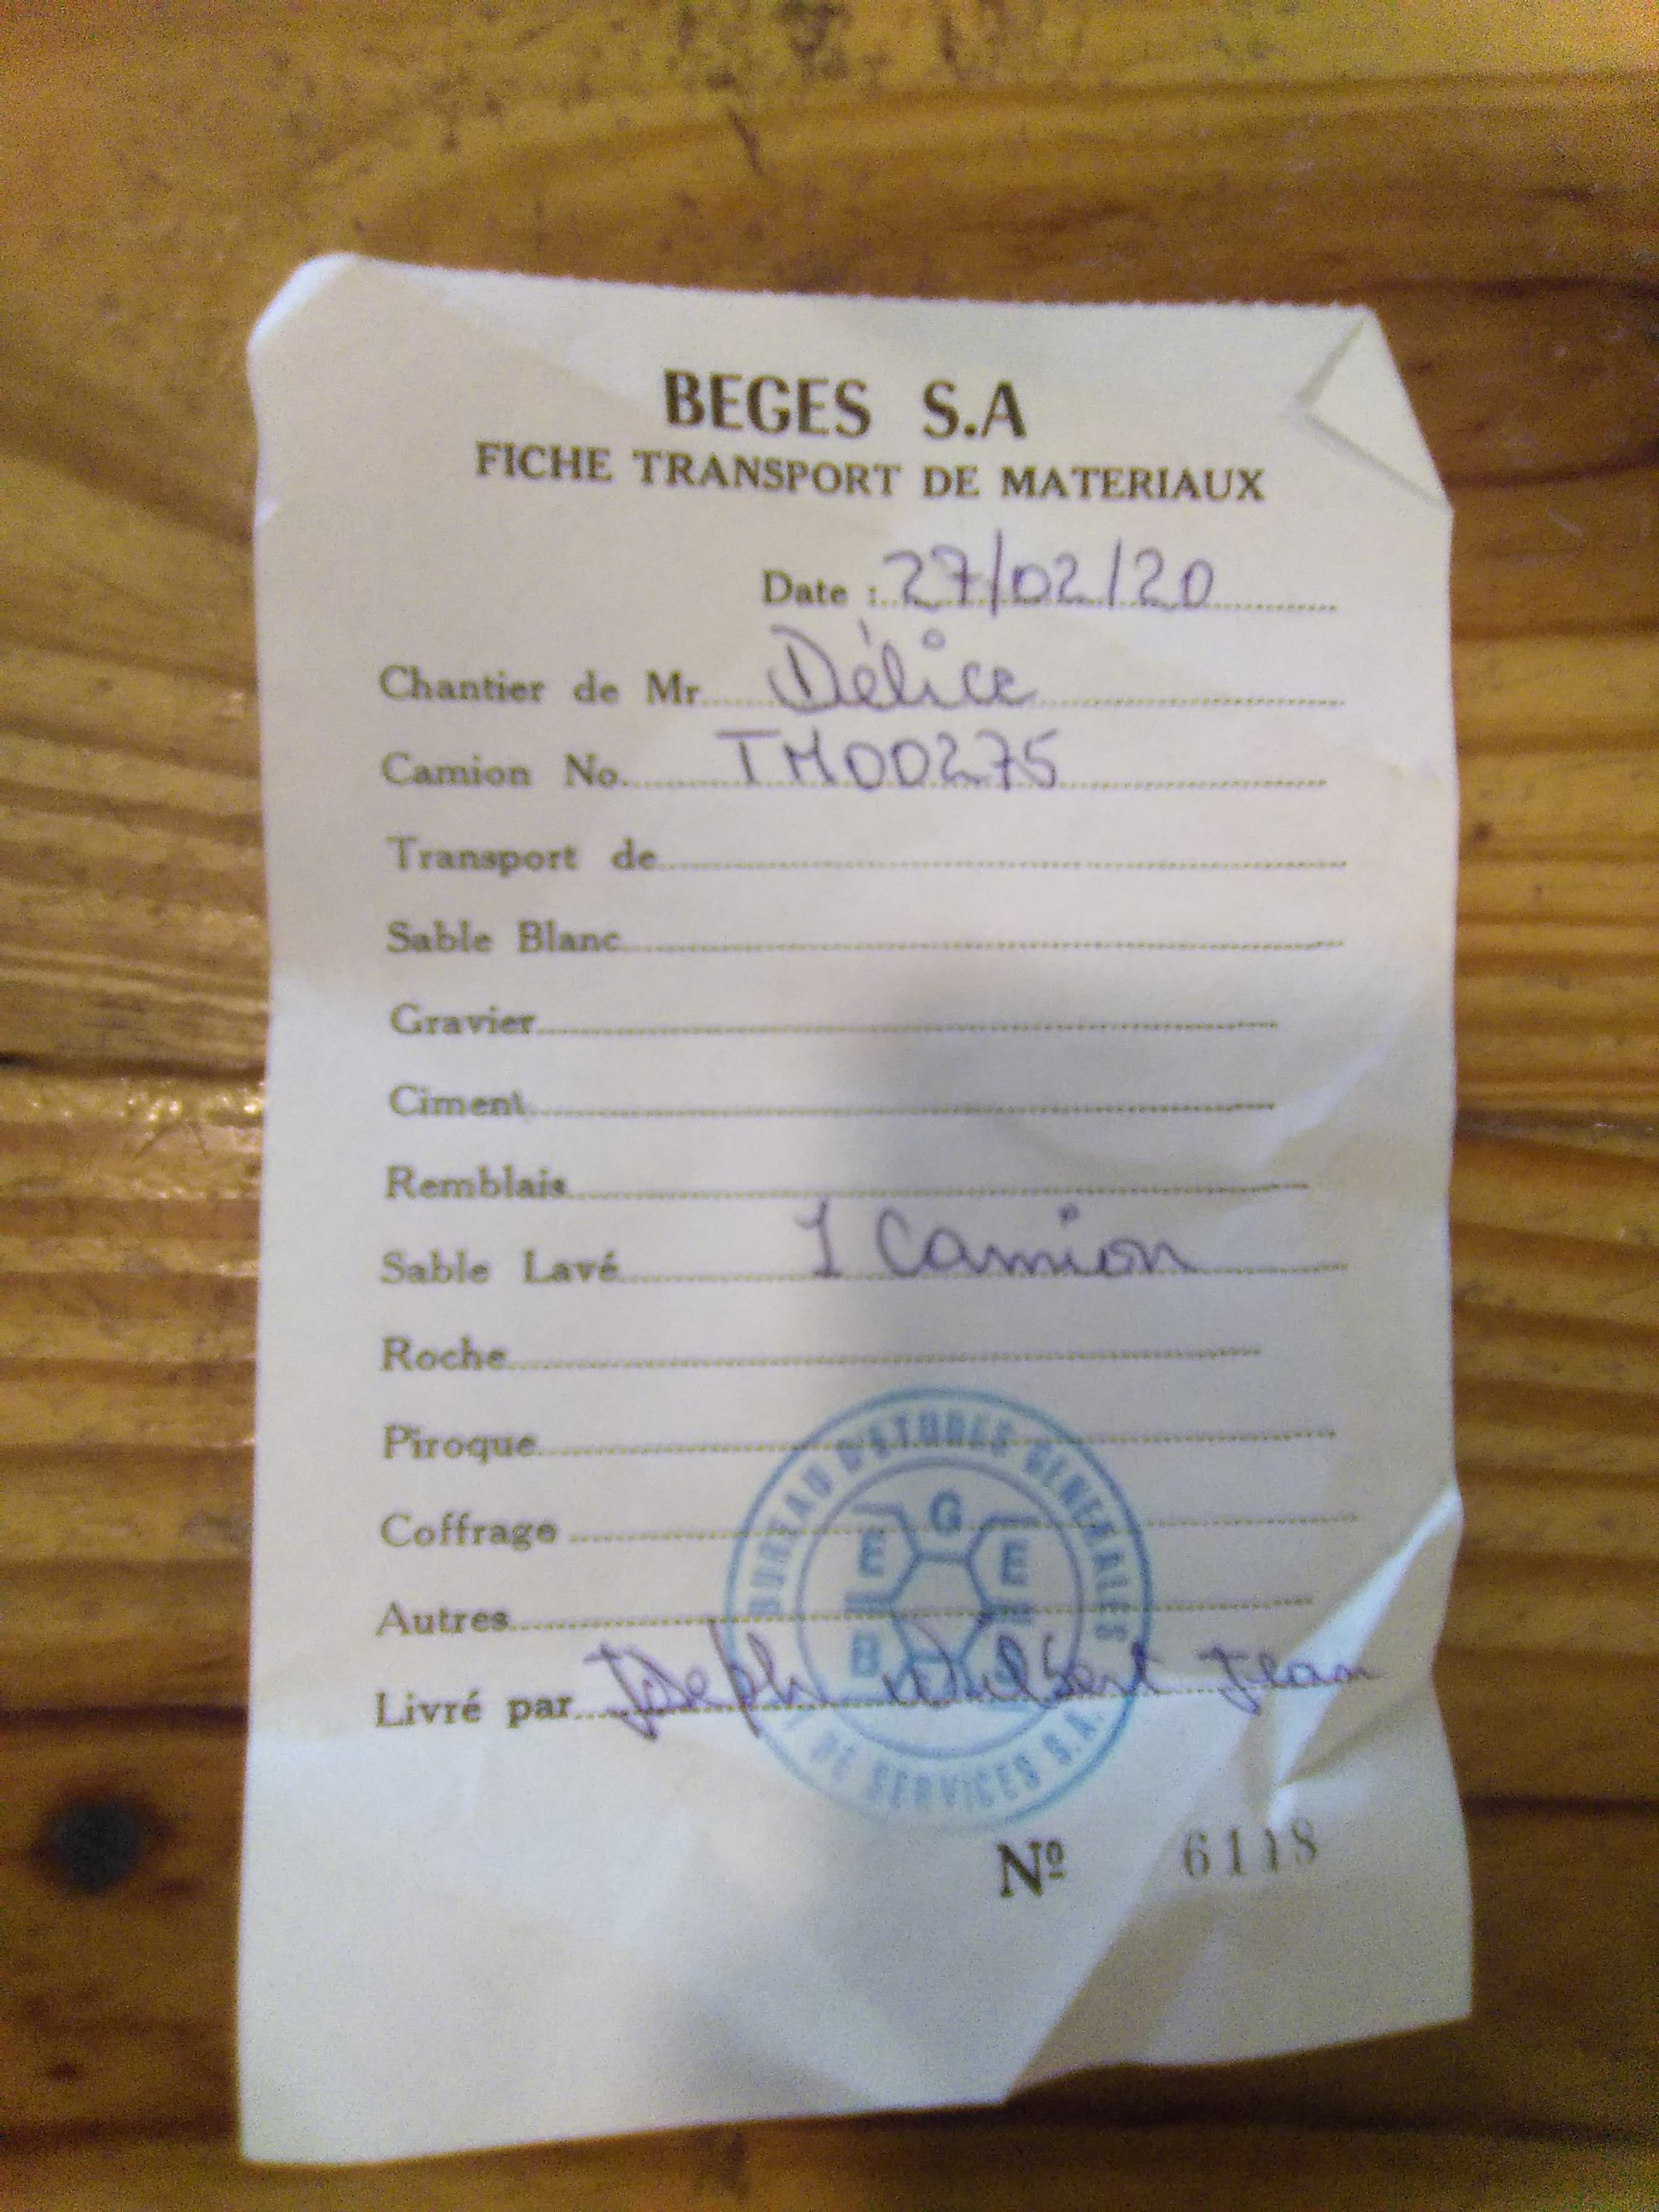 BEGES S.A
FICHE TRANSPORT DE MATERIAUX
Date : 27/02/20
Chantier de Mr. Délice
Camion No. TM00275
Transport de
Sable Blanc
Gravier
Ciment
Remblais
Sable Lavé 1 Camion
Roche
Piroque
Coffrage
Autres
Livré par Joseph Wilbert Jean
BUREAU D'ETUDES GENERALES
ET DE SERVICES S.A.
B E G E S
Nº 6118